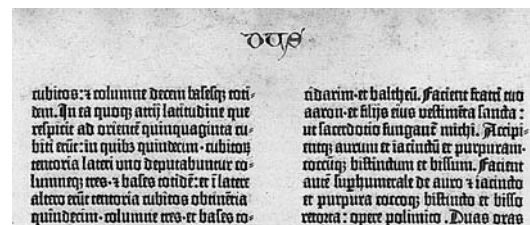 dus
cubitos: ⁊ columne decem basesq; toti-
dem. In ea quoq; atrij latitudine que
respicit ad orientē quinquaginta cu-
biti erūt: in quibȝ quindecim · cubitoꝝ
tentoria lateri uno deputabuntur co-
lumneq; tres · ⁊ bases totidē: et ī latere
altero erūt tentoria cubitos obtinētia
quindecim · columne tres · et bases to-
cidarim · et baltheū. Facient fratri tuo
aaron · et filijs eius vestimēta sancta:
ut sacerdotio fungant̄ michi. Accipi-
entq; aurum et iacinctū et purpuram ·
coccūq; bistinctum et bissum. Facient
autē suphumerale de auro ⁊ iacincto
et purpura coccoq; bistincto et bisso
retorta: opere polimico. Duas oras